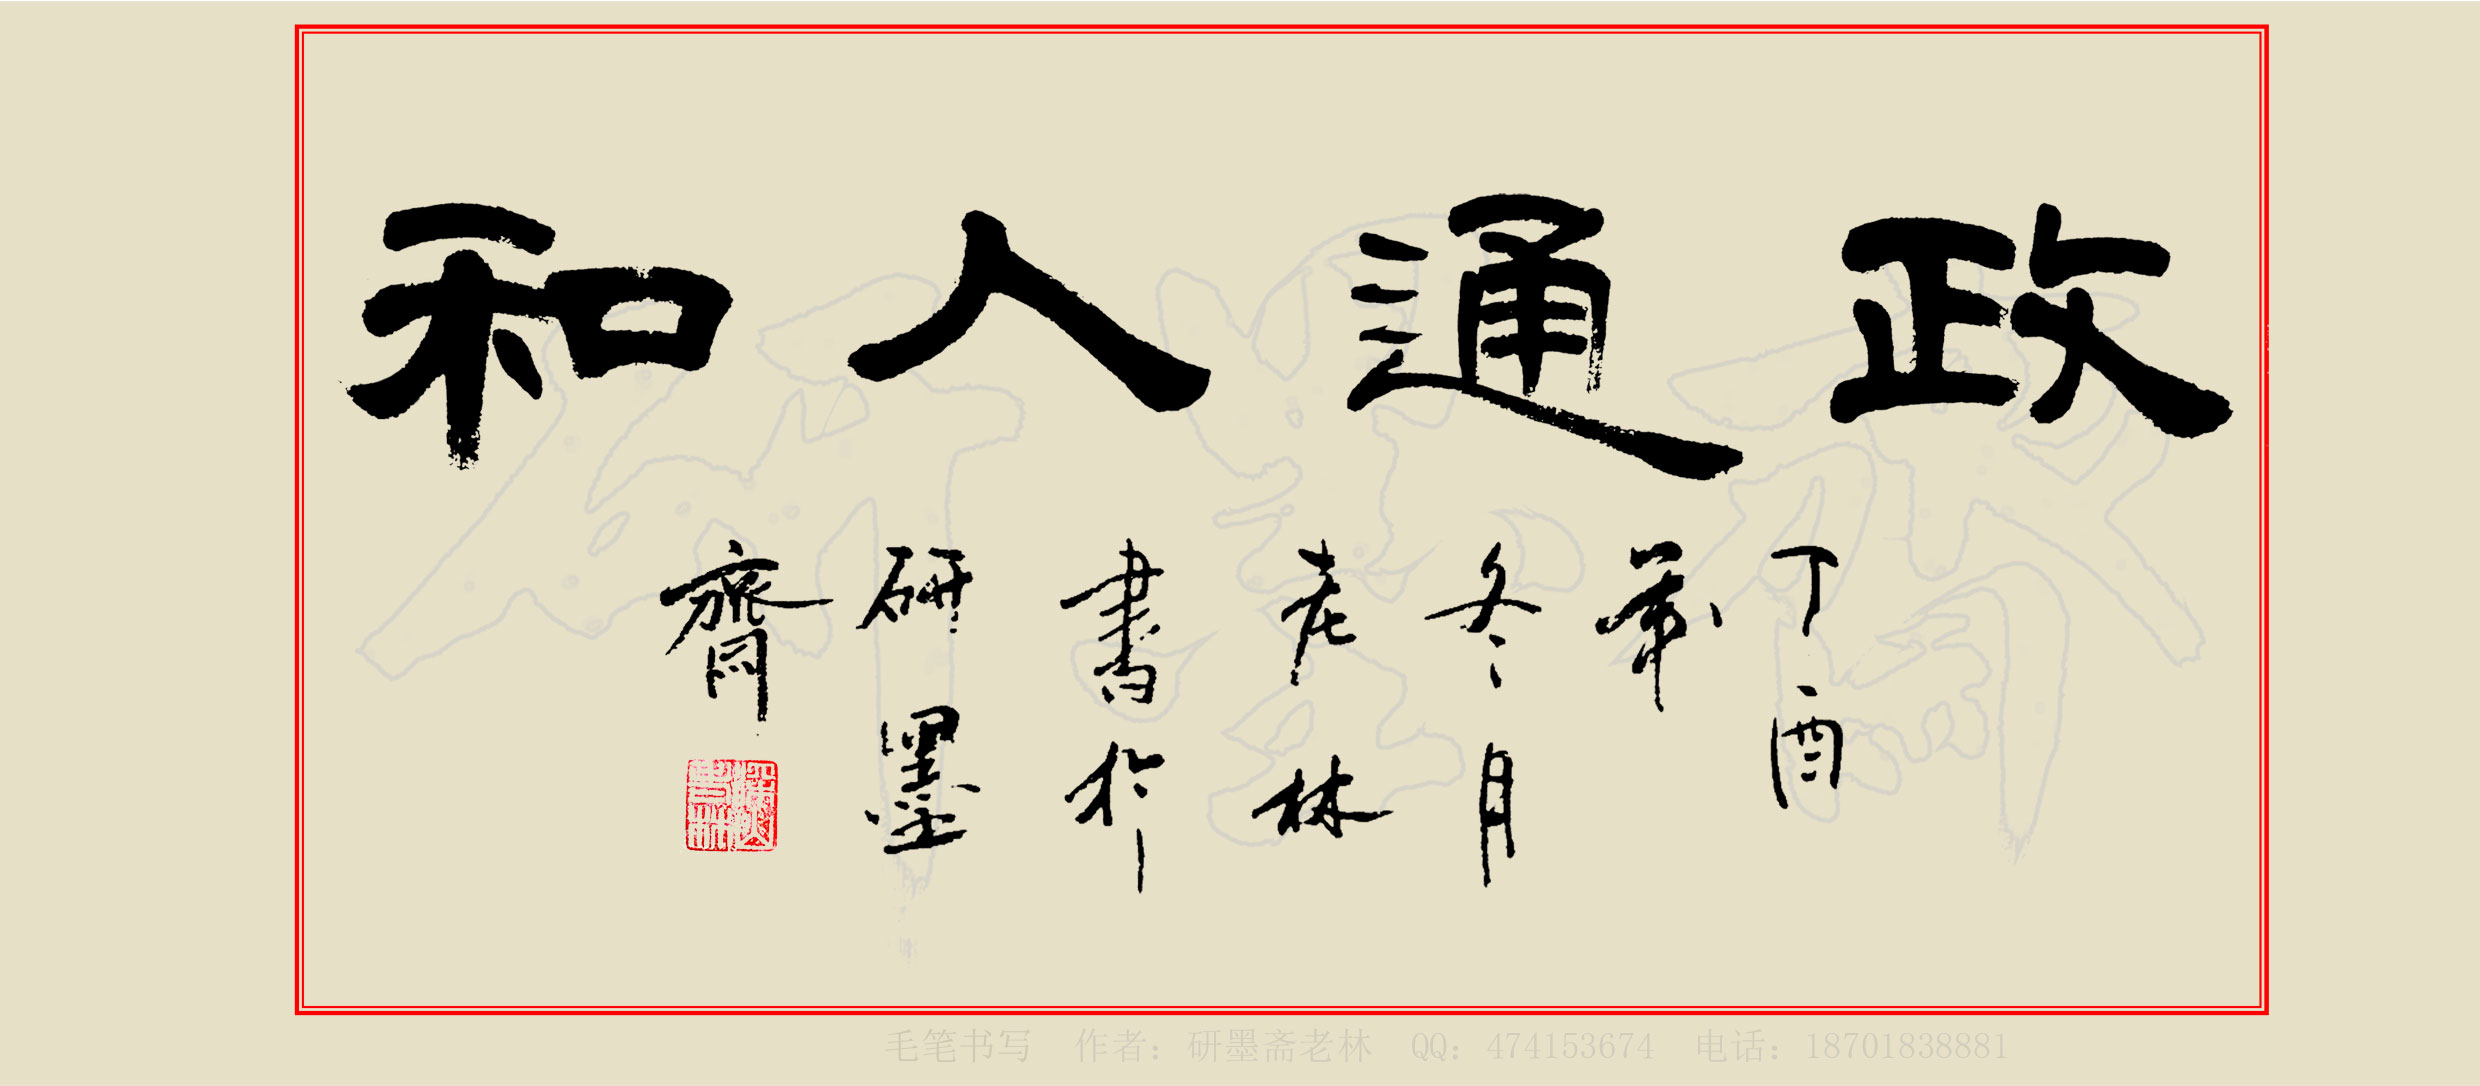 政通人和
丁酉
年
冬月
老林
書於
研墨
齋
毛笔书写 作者：研墨斋老林 QQ：474153674 电话：18701838881